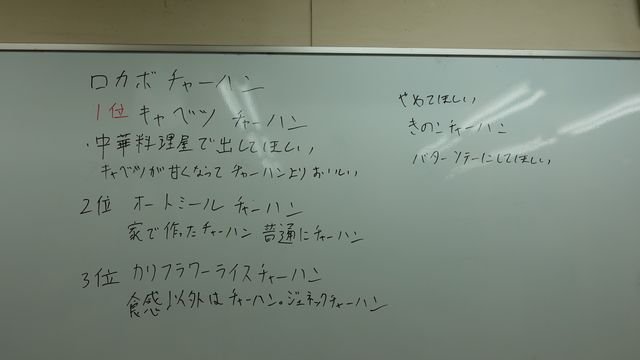 ロカボチャーハン
1位 キャベツ チャーハン
・中華料理屋で出してほしい
キャベツが甘くなって チャーハンよりおいしい
2位 オートミール チャーハン
家で作ったチャーハン 普通にチャーハン
3位 カリフラワーライスチャーハン
食感以外はチャーハン。ジェネリックチャーハン
やめてほしい
きのこチャーハン
バターソテーにしてほしい